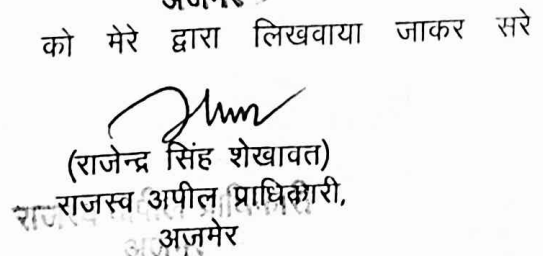 अजमेर
को मेरे द्वारा लिखवाया जाकर सरे
(राजेन्द्र सिंह शेखावत)
राजस्व अपील प्राधिकारी,
अजमेर